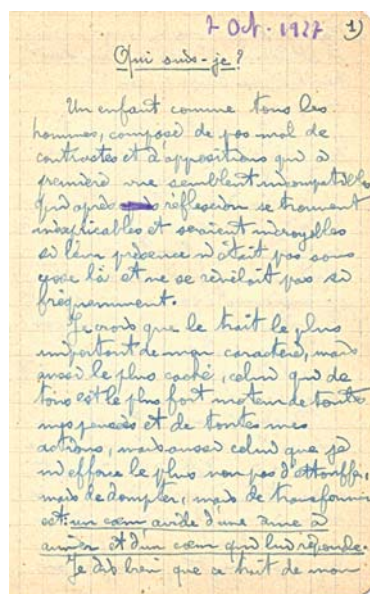 7 Oct. 1927 1)
Qui suis-je?
Un enfant comme tous les
hommes, composé de pas mal de
contrastes et d'oppositions qui à
première vue semblent incompatibles
qui après réflexion se trouvent
inexplicables et seraient incroyables
si leur présence n'était pas sans
cesse là et ne se révélait pas si
fréquemment.
Je crois que le trait le plus
important de mon caractère, mais
aussi le plus caché, celui qui de
tous est le plus fort moteur de toutes
mes pensées et de toutes mes
actions, mais aussi celui que je
m'efforce le plus non pas d'étouffer,
mais de dompter, mais de transformer
est: un cœur avide d'une âme à
aimer et d'un cœur qui lui réponde.
Je dis bien que ce trait de mon